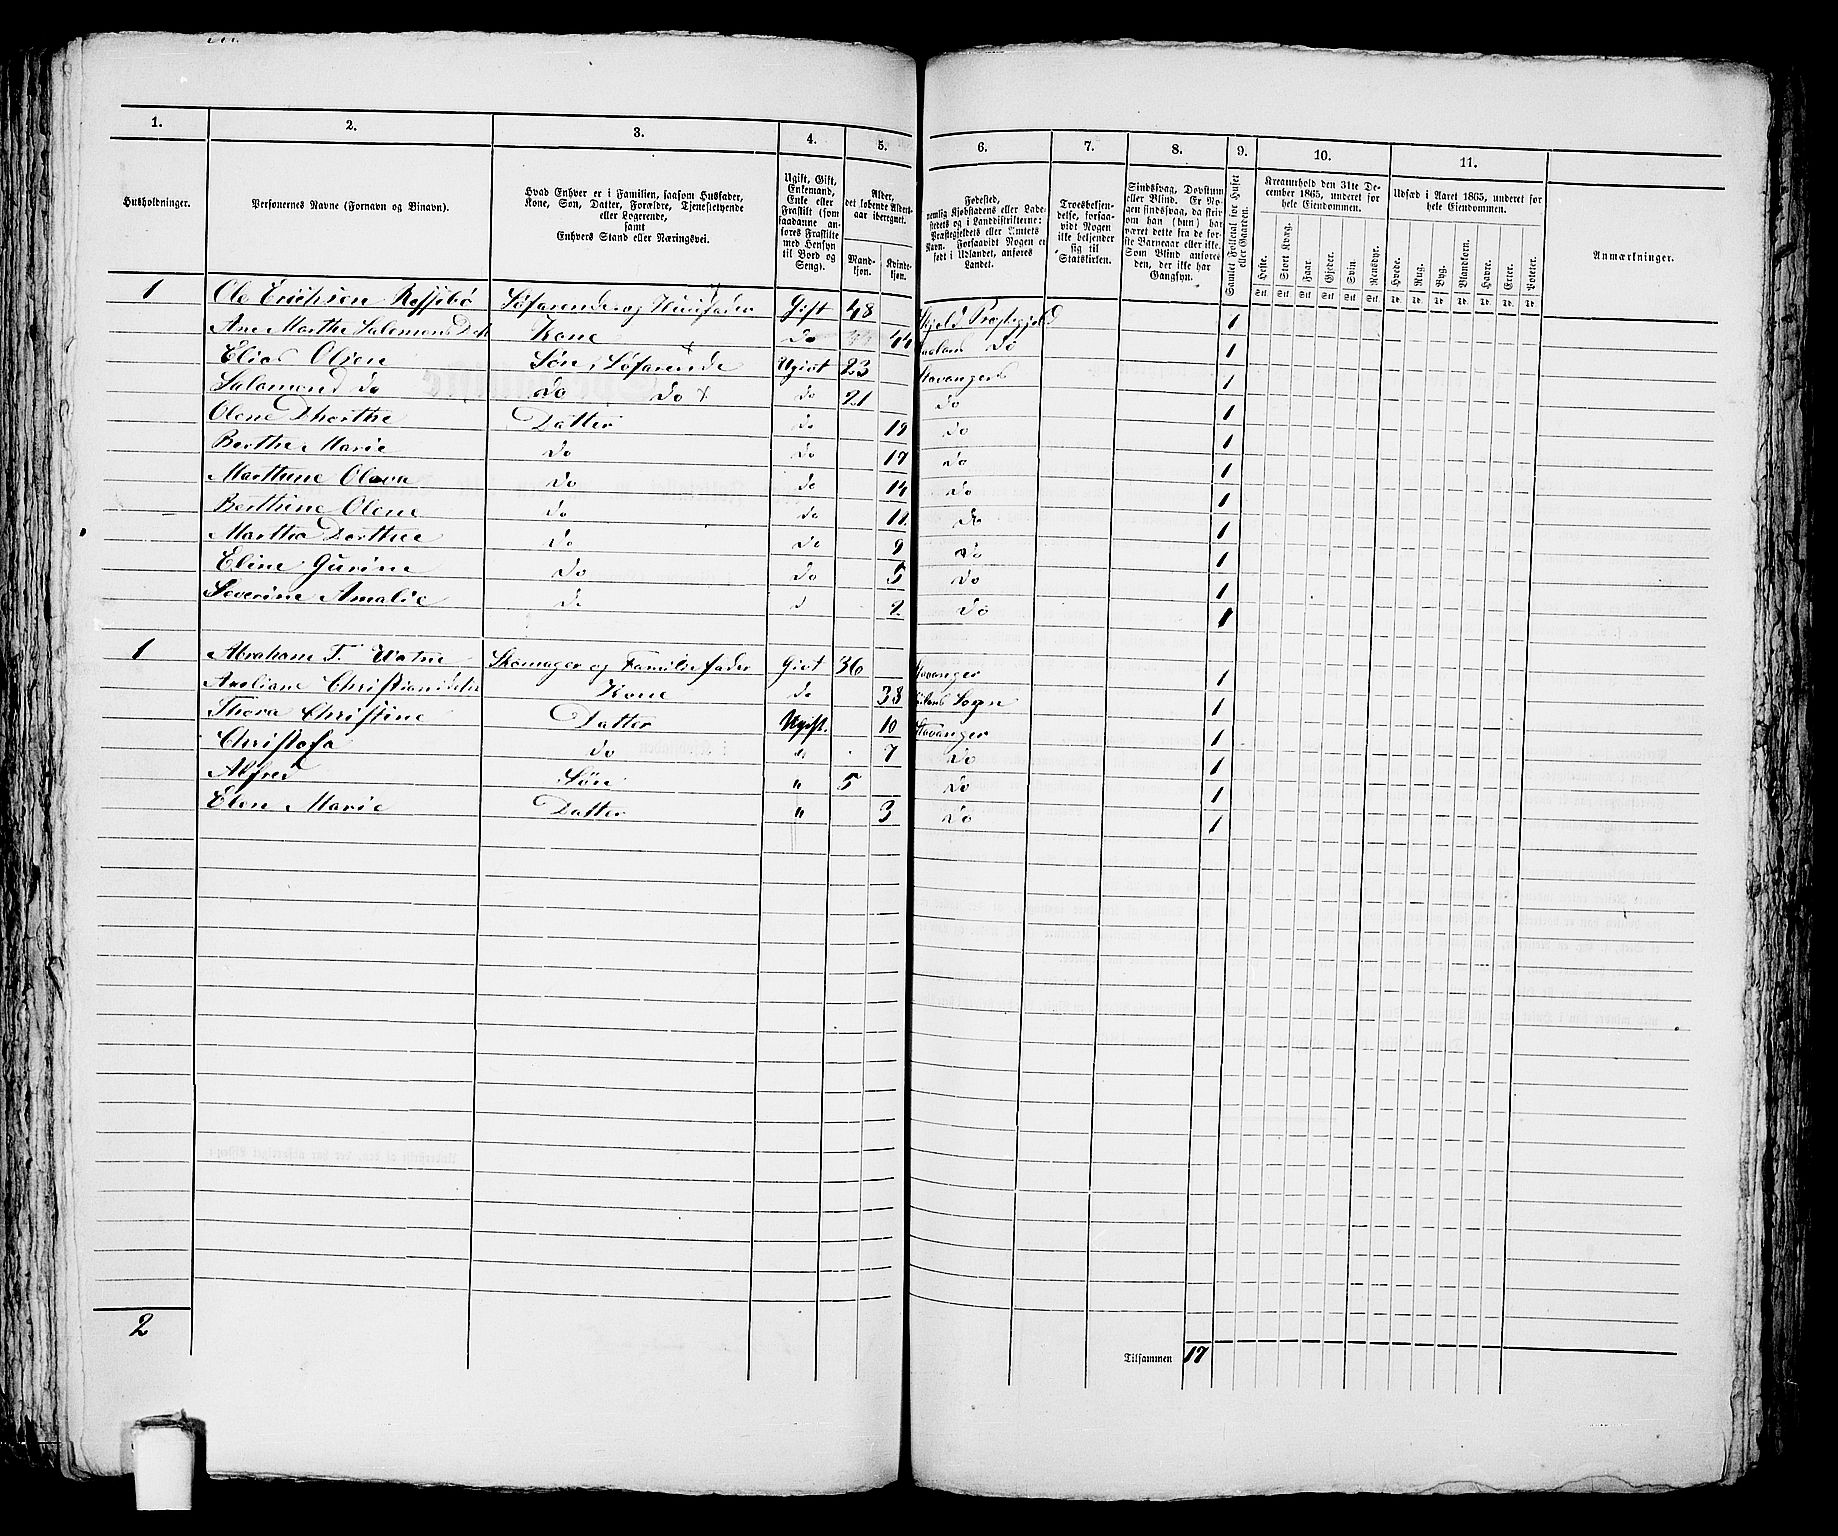 1. 2. 3. 4. 5. 6. 7. 8. 9. 10. 11.
Husholdninger. Personernes Navne (Fornavn og Binavn). Hvad Enhver er i Familien, saasom Husfader, Kone, Søn, Datter, Forældre, Tjenestetyende eller Logerende, samt Enhvers Stand eller Næringsvei. Ugift, Gift, Enkemand, Enke eller Fraskilt (som saadanne anføres Fraskilte med Hensyn til Bord og Seng). Alder, det løbende Alders-aar iberegnet. Mand-kjøn. Kvinde-kjøn. Fødested, nemlig Kjøbstadens eller Ladestedets og i Landdistrikterne: Præstegjeldets eller Amtets Navn. Forsaavidt Nogen er født i Udlandet, anføres Landet. Troesbekjendelse, forsaavidt Nogen ikke bekjender sig til Statskirken. Sindssvag, Døvstum eller Blind. Er Nogen sindssvag, da skrives om han (hun) har været dette fra de første Barneaar eller ikke. Som Blind anføres den, der ikke har Gangsyn. Samlet Folketal for Huset eller Gaarden. Kreaturhold den 31te December 1865, underet for hele Eiendommen. Udsæd i Aaret 1865, underet for hele Eiendommen. Anmærkninger.
Heste. Stort Kvæg. Faar. Gjeder. Svin. Rensdyr. Hvede. Rug. Byg. Blandkorn. Havre. Erter. Poteter.
1 Ole Erichsen Søfarende og Huusfader Gift 48 Skjold Præstegjeld 1
Ane Marthe Salomons Kone do 44 do 1
Elias Olsen Søn, Søfarende Ugivt 23 Stavanger 1
Salomond do do do + do 21 do 1
Olene Dhorthe Datter do 19 do 1
Berthe Marie do do 17 do 1
Marthine Olava do do 14 do 1
Berthine Olene do do 11 do 1
Martha Dorthee do do 9 do 1
Eline Gurine do do 5 do 1
Severine Amalie do d 2 do 1
1 Abraham T. Watne Skomager og Familiefader Givt 36 Stavanger 1
Christiansdatter Kone do 38 Sogn 1
Thora Christine Datter Ugift. 10 Stavanger 1
Christofa do do 7 do 1
Alfred Søn " 5 do 1
Elen Marie Datter " 3 do 1
2 Tilsammen 17